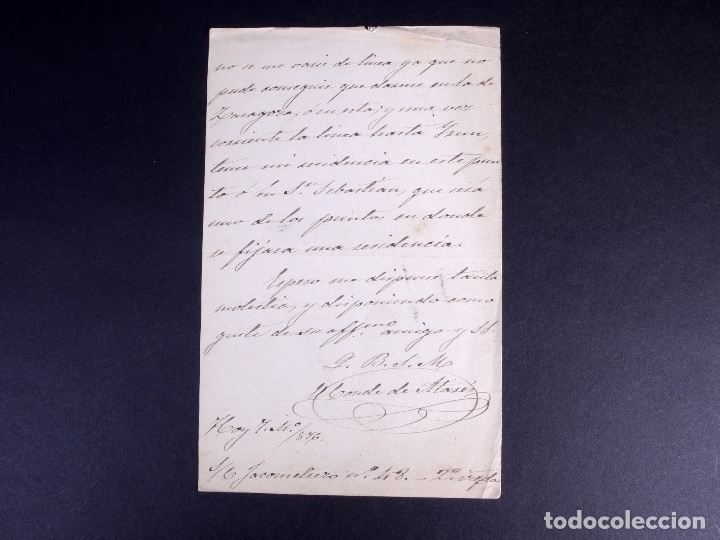 no se me varie de linea, ya que no
pude conseguir quedarme en la de
Zaragoza, ó en esta; y una vez
corriente la linea hasta Irun,
tener mi residencia en este pun
to ó en Sn. Sebastian, que sería
uno de los puntos en donde
se fijara una residencia.
Espero me dispense tanta
molestia, y disponiendo como
guste de su affmo. amigo y SS.
Q. B. S. M
El Conde de Atarés
Hoy 7. Mo/876.
S/C Jacometrezo nº 48. 2º izqda
todocoleccion
todocoleccion.net